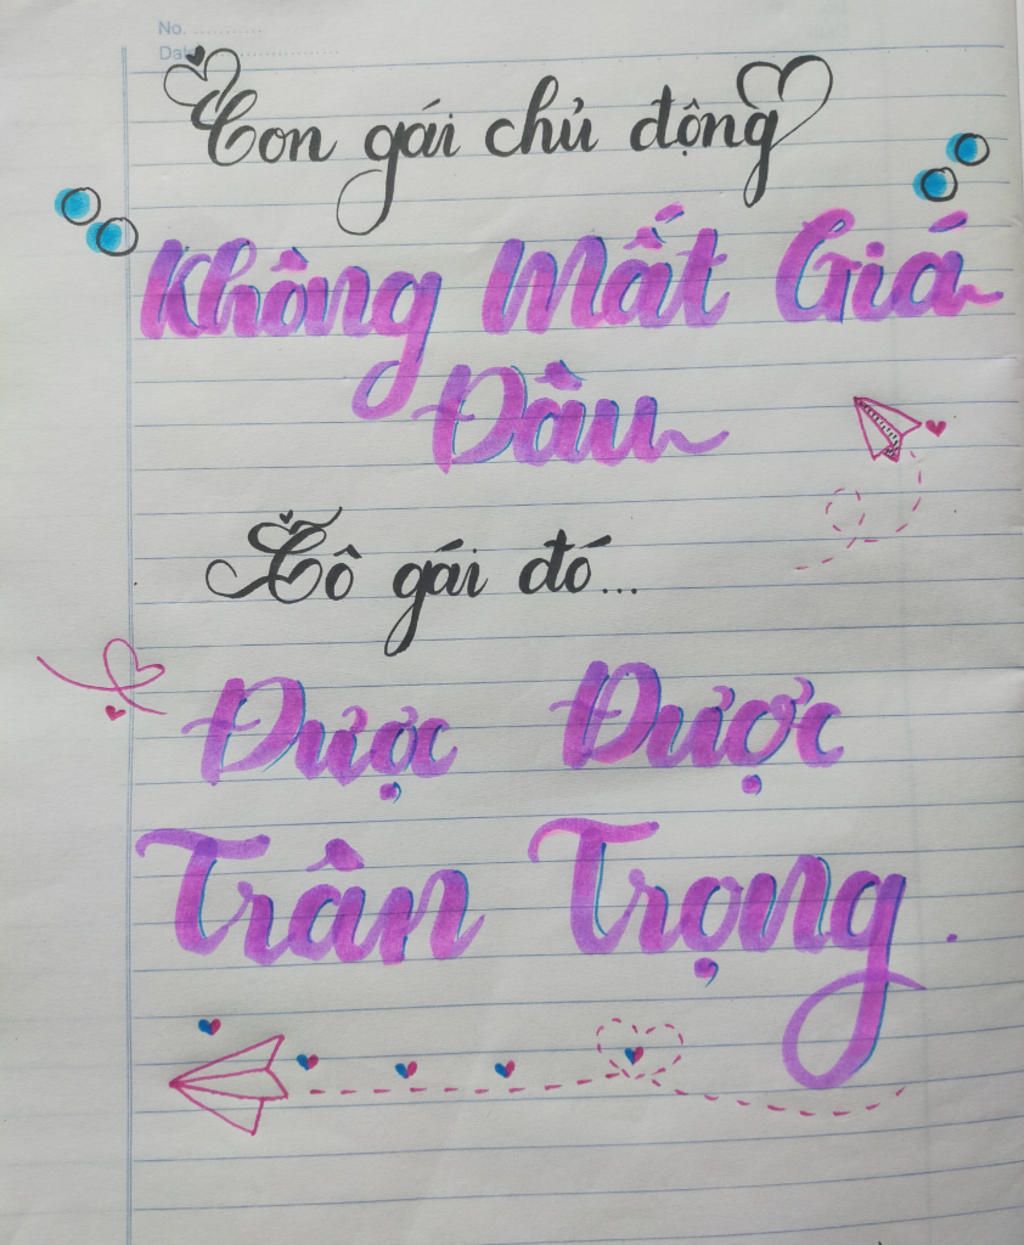 No. ............
Date ....................
Con gái chủ động
Không Mất Giá
Đâu
Cô gái đó...
Được Được
Trân Trọng.